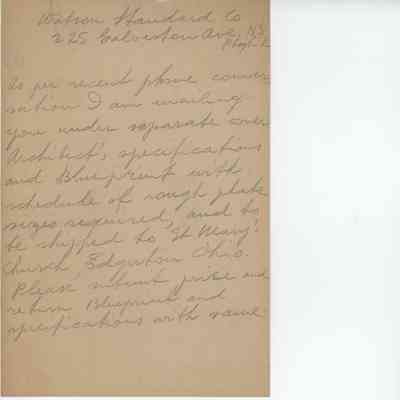 Watson Standard Co
225 Galveston Ave, N.S.
As per recent phone conver
sation I am mailing
you under separate cover
Architect's specifications
and Blueprint with
schedule of rough plate
sizes required, and to
be shipped to St Mary's
Church, Edgerton Ohio.
Please submit price and
return Blueprint and
specifications with same.